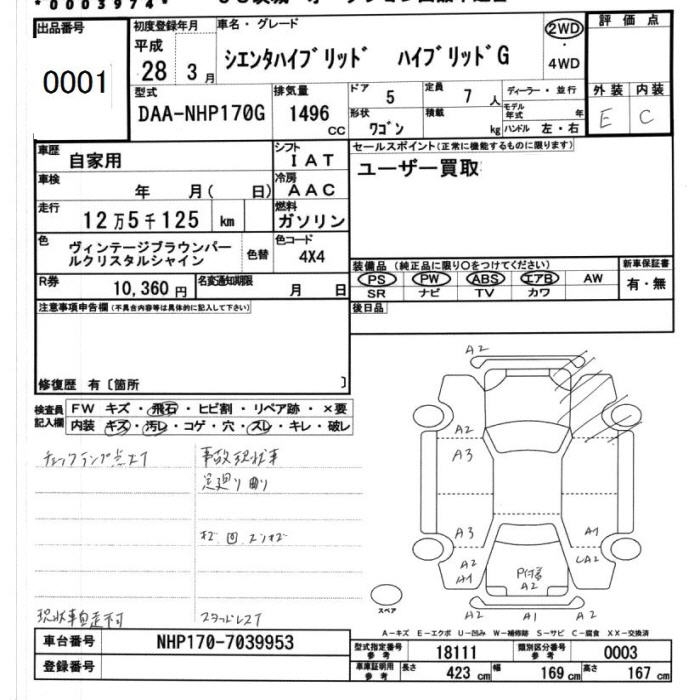 *0003974*
出品番号 初度登録年月 車名・グレード 2WD 評価点
0001 平成 シエンタハイブリッド ハイブリッドG ・
28 3月 4WD
型式 排気量 ドア 5 定員 7人 ディーラー・並行 外装 内装
DAA-NHP170G 1496cc 形状 ワゴン 積載 kg モデル年式 年 E C
ハンドル 左・右
車歴 自家用 シフト IAT セールスポイント(正常に機能するものに限ります)
車検 年 月( 日) 冷房 AAC ユーザー買取
走行 12万5千125 km 燃料 ガソリン
色 ヴィンテージブラウンパールクリスタルシャイン 色替 色コード 4X4
装備品(純正品に限り○をつけてください) 新車保証書
R券 10,360円 名変通知期限 月 日 PS PW ABS エアB AW 有・無
SR ナビ TV カワ
注意事項申告欄(不具合内容等は具体的に記入して下さい) 後日品
修復歴 有〔箇所 〕
検査員記入欄 FW キズ・飛石・ヒビ割・リペア跡・×要
内装 キズ・汚レ・コゲ・穴・スレ・キレ・破レ
チェックランプ点灯 事故現状車
足廻り曲り
現状車自走不可 スタッドレス
A2
A2
A3
A3 A1
A2 A2
A1
A2
A2 A1 A2
スペア
A-キズ E-エクボ U-凹み W-補修跡 S-サビ C-腐食 XX-交換済
車台番号 NHP170-7039953 型式指定番号 参考 18111 類別区分番号 参考 0003
登録番号 車庫証明用 参考 長さ 423 cm 幅 169 cm 高さ 167 cm